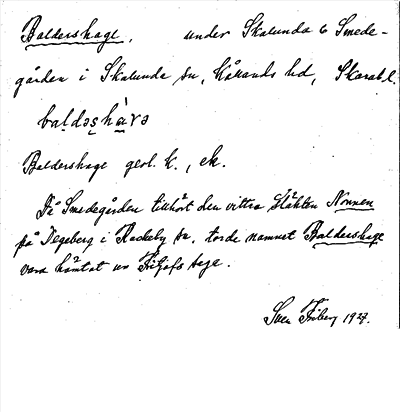 Baldershage, under Skalunda 6 Smede-
gården i Skalunda sn, Kållands hd, Skarab.l.
baldəs̹hà̤və
Baldershage geol. k., ek.
Då Smedegården tillhört den vittra släkten Nonnen
på Degeberg i Rackeby sn, torde namnet Baldershage
vara hämtat ur Fritjofs saga.
Sven Friberg 1927.